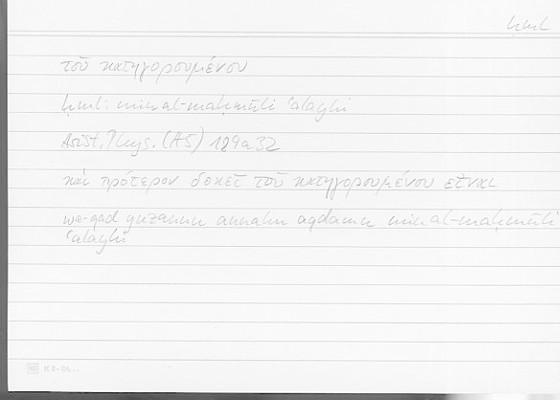 ḥml
τοῦ κατηγορουμένου
ḥml: min al-maḥmūli ʿalayhi
Arist. Phys. (A6) 189a32
καὶ πρότερον δοκεῖ τοῦ κατηγορουμένου εἶναι
wa-qad yuẓannu annahu aqdamu min al-maḥmūli
ʿalayhi